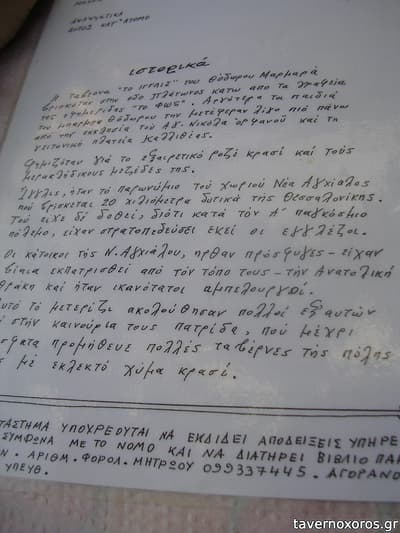 ΑΝΑΨΥΚΤΙΚΑ
ΚΑΤ' ΑΤΟΜΟ
ιστορικά
Η ταβέρνα "το ΙΓΓΛΙΣ" του Θόδωρου Μαρμαρά
βρισκόταν στην οδό Πλάτωνος κάτω από τα γραφεία
της εφημερίδας "το ΦΩΣ". Αργότερα τα παιδιά
του μπάρμπα Θόδωρου την μετέφεραν λίγο πιό πάνω
από την εκκλησία του Αγ. Νικόλα Ορφανού και τη
γειτονική πλατεία Καλλιθέας.
Φημιζόταν γιά το εξαιρετικό ροζέ κρασί και τούς
μερακλήδικους μεζέδες της.
Ίγγλις, ήταν το παρωνύμιο τού χωριού Νέα Αγχίαλος
πού βρίσκεται 20 χιλιόμετρα δυτικά της Θεσσαλονίκης.
Τού είχε δέ δοθεί, διότι κατά τόν Α' παγκόσμιο
πόλεμο, είχαν στρατοπεδεύσει εκεί οι εγγλέζοι.
Οι κάτοικοι τής Ν. Αγχιάλου, ήρθαν πρόσφυγες - είχαν
βίαια εκπατρισθεί από τόν τόπο τους - τήν Ανατολική
Θράκη και ήταν ικανότατοι αμπελουργοί.
αυτό τό μετερίζι ακολούθησαν πολλοί εξ αυτών
στήν καινούρια τους πατρίδα, πού μέχρι
προμήθευε πολλές ταβέρνες τής πόλης
μέ εκλεκτό χύμα κρασί.
ΥΠΟΧΡΕΟΥΤΑΙ ΝΑ ΕΚΔΙΔΕΙ ΑΠΟΔΕΙΞΕΙΣ ΥΠΗΡΕ
ΣΥΜΦΩΝΑ ΜΕ ΤΟ ΝΟΜΟ ΚΑΙ ΝΑ ΔΙΑΤΗΡΕΙ ΒΙΒΛΙΟ ΠΑΡ
Ν. ΑΡΙΘΜ. ΦΟΡΟΛ. ΜΗΤΡΩΟΥ 099337445. ΑΓΟΡΑΝΟ
ΥΠΕΥΘ.
tavernoxoros.gr